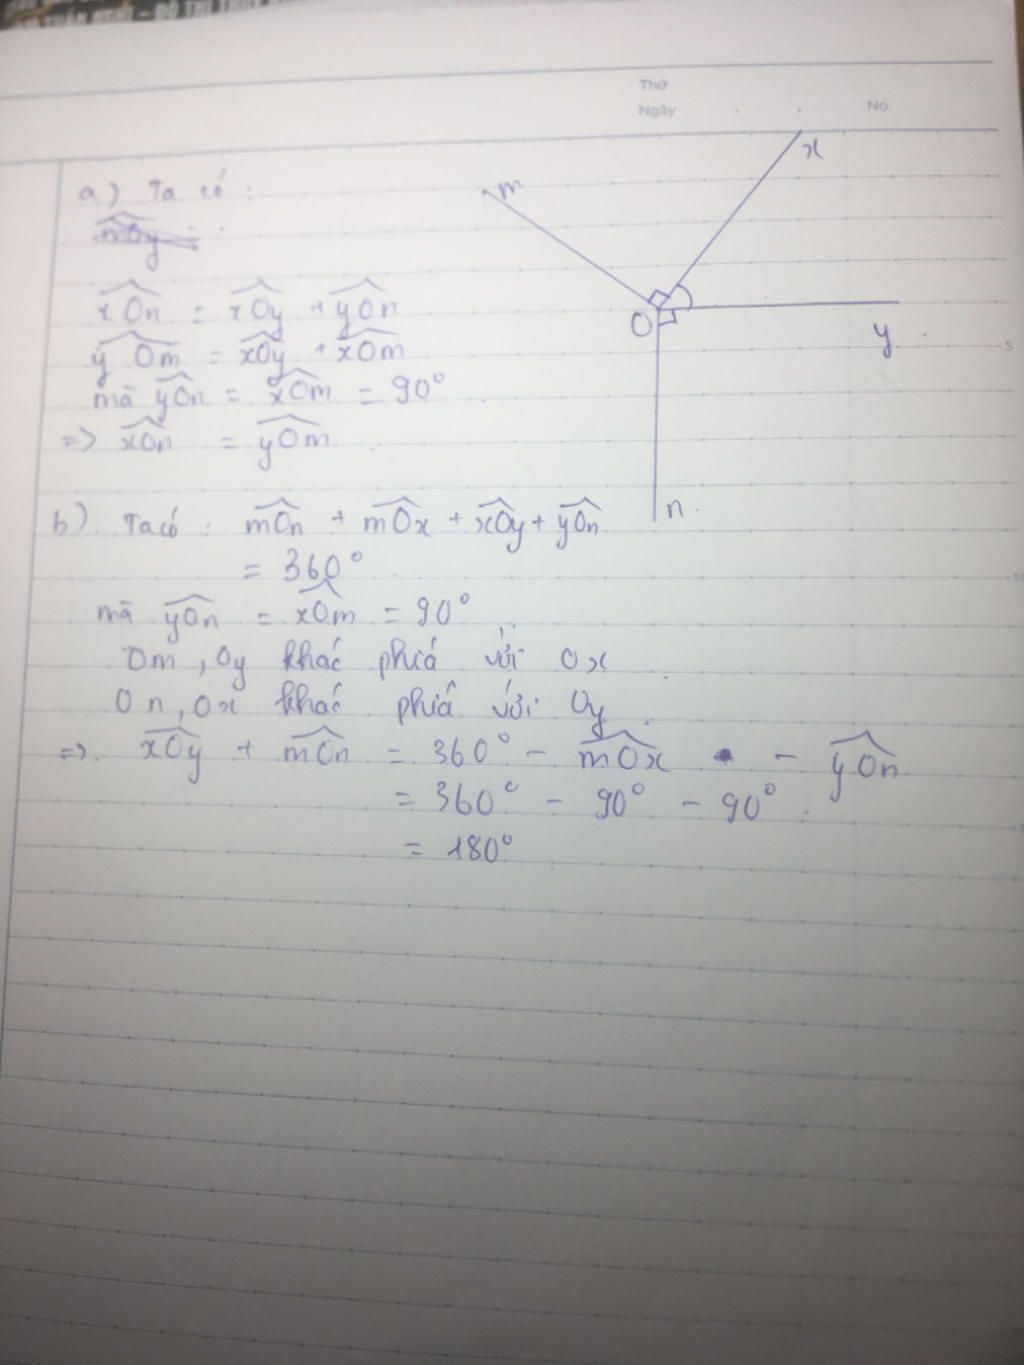 Thứ
Ngày
No.
x
m
O
y
n
5
10
a) Ta có :
xOn = xOy + yOn
yOm = xOy + xOm
mà yOn = xOm = 90°
=> xOn = yOm
b). Ta có : mOn + mOx + xOy + yOn
= 360°
mà yOn = xOm = 90°
Om, Oy khác phiá với Ox
On, Ox khác phiá với Oy.
=> xOy + mOn = 360° - mOx - yOn
= 360° - 90° - 90°
= 180°